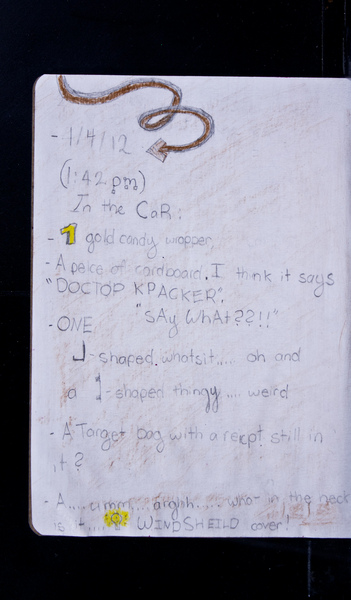 - 1/4/12
(1:42 pm)
In the CaR:
- 1 gold candy wrapper,
- A peice of cardboard. I think it says
"DOCTOP KPACKER".
"SAy WhAt??!!"
- ONE
J-shaped whatsit..... oh and
a 1-shaped thingy .... weird
- A Target bag with a recipt still in
it?
- A.....umm... arghh..... who- in the neck
is it.... WINDSHEILD cover!